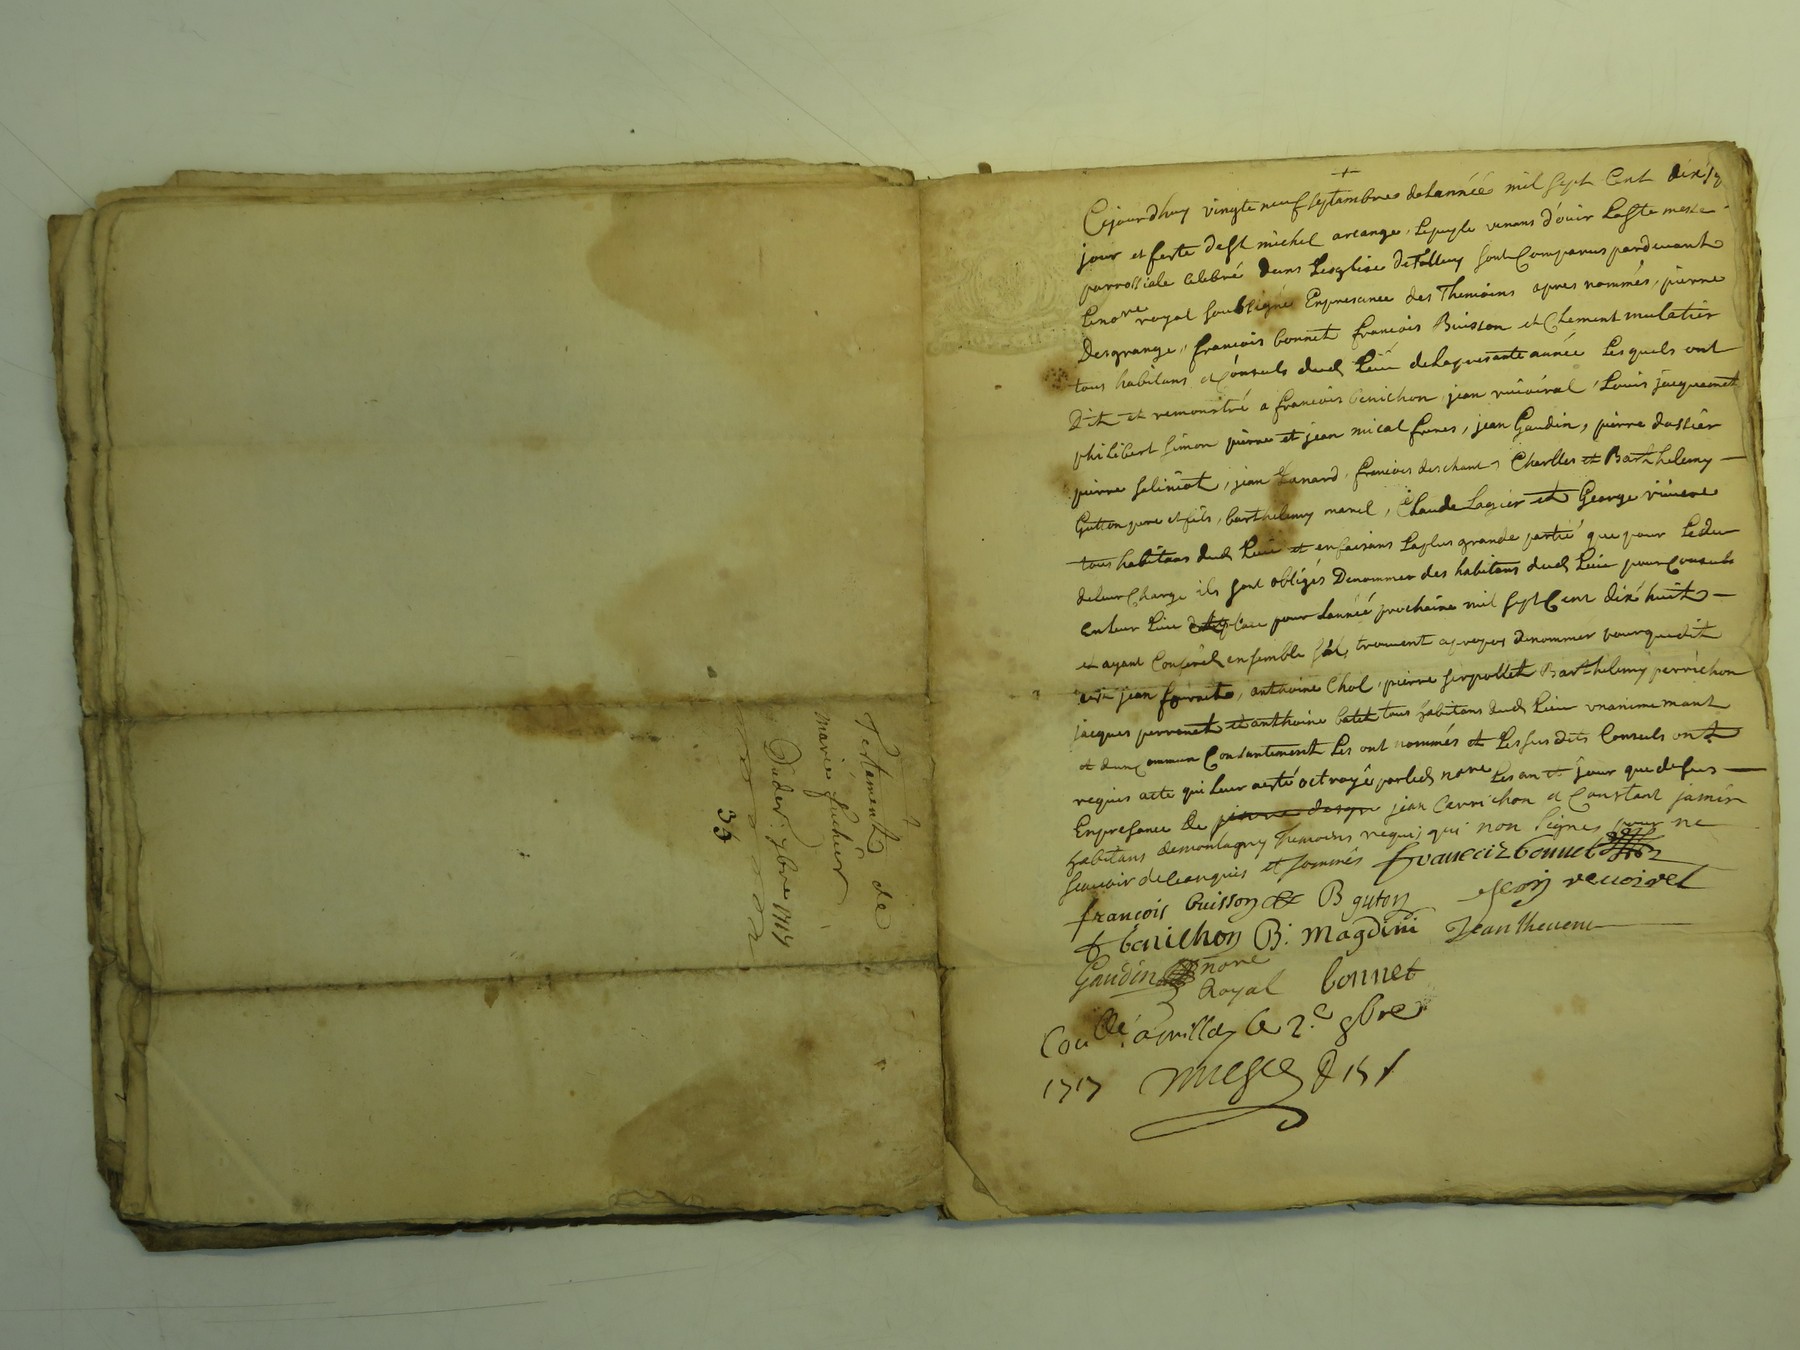 Testament de
marie
Du der.r 9bre 1717
35
+
Cejourdhuy vingte neuf septambre delannéé mil sept Cent dix sept
jour et feste de St michel arcange, Lepeuple venans d'ouir La Ste messe
parrossiale celebré dans Lesglise de Talluy sont Comparus pardevant
Le nore royal soubsigné En presance des Themoins apres nommés, pierre
Desgrange, francois bonnet francois Buisson et Clement mulatier
tous habitans et Consuls dud Lieu de la presante année Les quels ont
Dit et remonstré a francois benichon, jean
philibert simon pierre et jean mical freres, jean Gaudin, pierre dassier
pierre, jean, francois deschamt, Charlles et Barthelemy
Gutton pere et fils, barthelemy, Claude Lagier et George
tous habitans dud Lieu et en faisans La plus grande partié que pour Le deu
de leur Charge ils sont obligés De nommer des habitans dud Lieu pour Consuls
en leur Lieu et place pour Lannéé prochaine mil sept Cent dix huit
et ayant Conferé ensemble trouvent a propos de nommer
jean, anthoine Chol, pierre serpollet Barthelemy perrichon
jacques perronet et anthoine batet tous habitans dud Lieu unanimemant
et d'un Commun Consantement Les ont nommés et Les sus dits Consuls ont
requis acte qui Leur a esté octroyé par led nore Les an et jour que dessus
En presance de pierre jean perrichon et Constant jamin
habitans de montagny Themoins requis qui non signés pour ne
scavoir de ce anquis et sommés francois bonnet
françois buisson B guton jean
f benichon B: magdini Jean thevenet
Gaudin nore
Royal bonnet
Coullé a le 2.e 8bre
1717